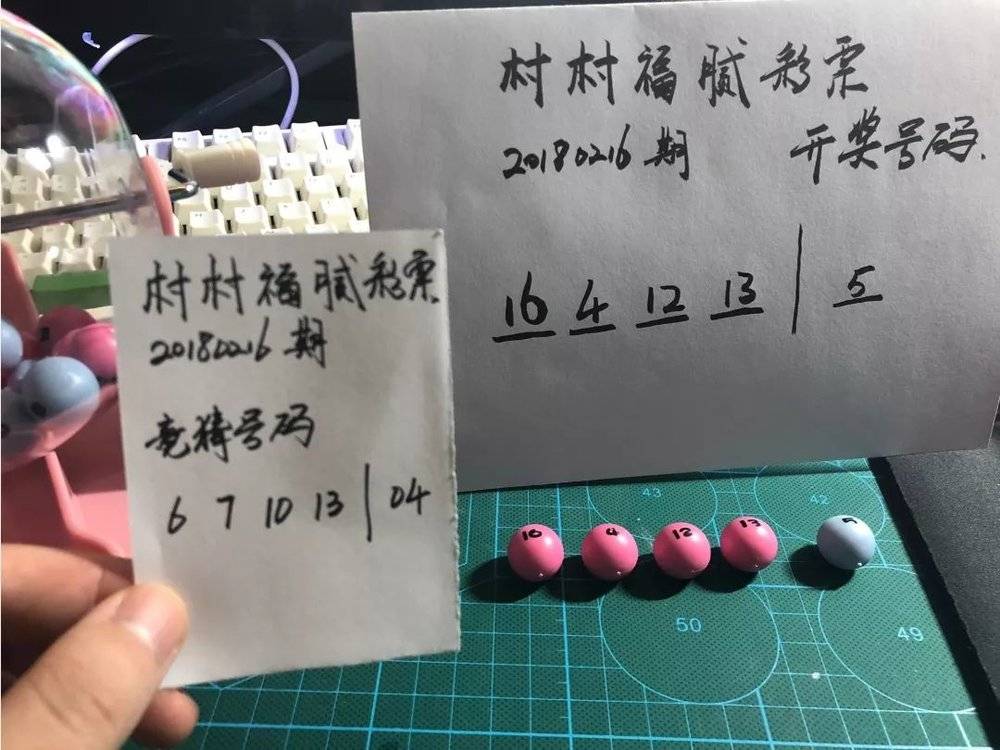 村村福腻彩票
20180216期 开奖号码.
16 4 12 13 | 5
村村福腻彩票
20180216期
竞猜号码
6 7 10 13 | 04
16 4 12 13
43
42
50
49